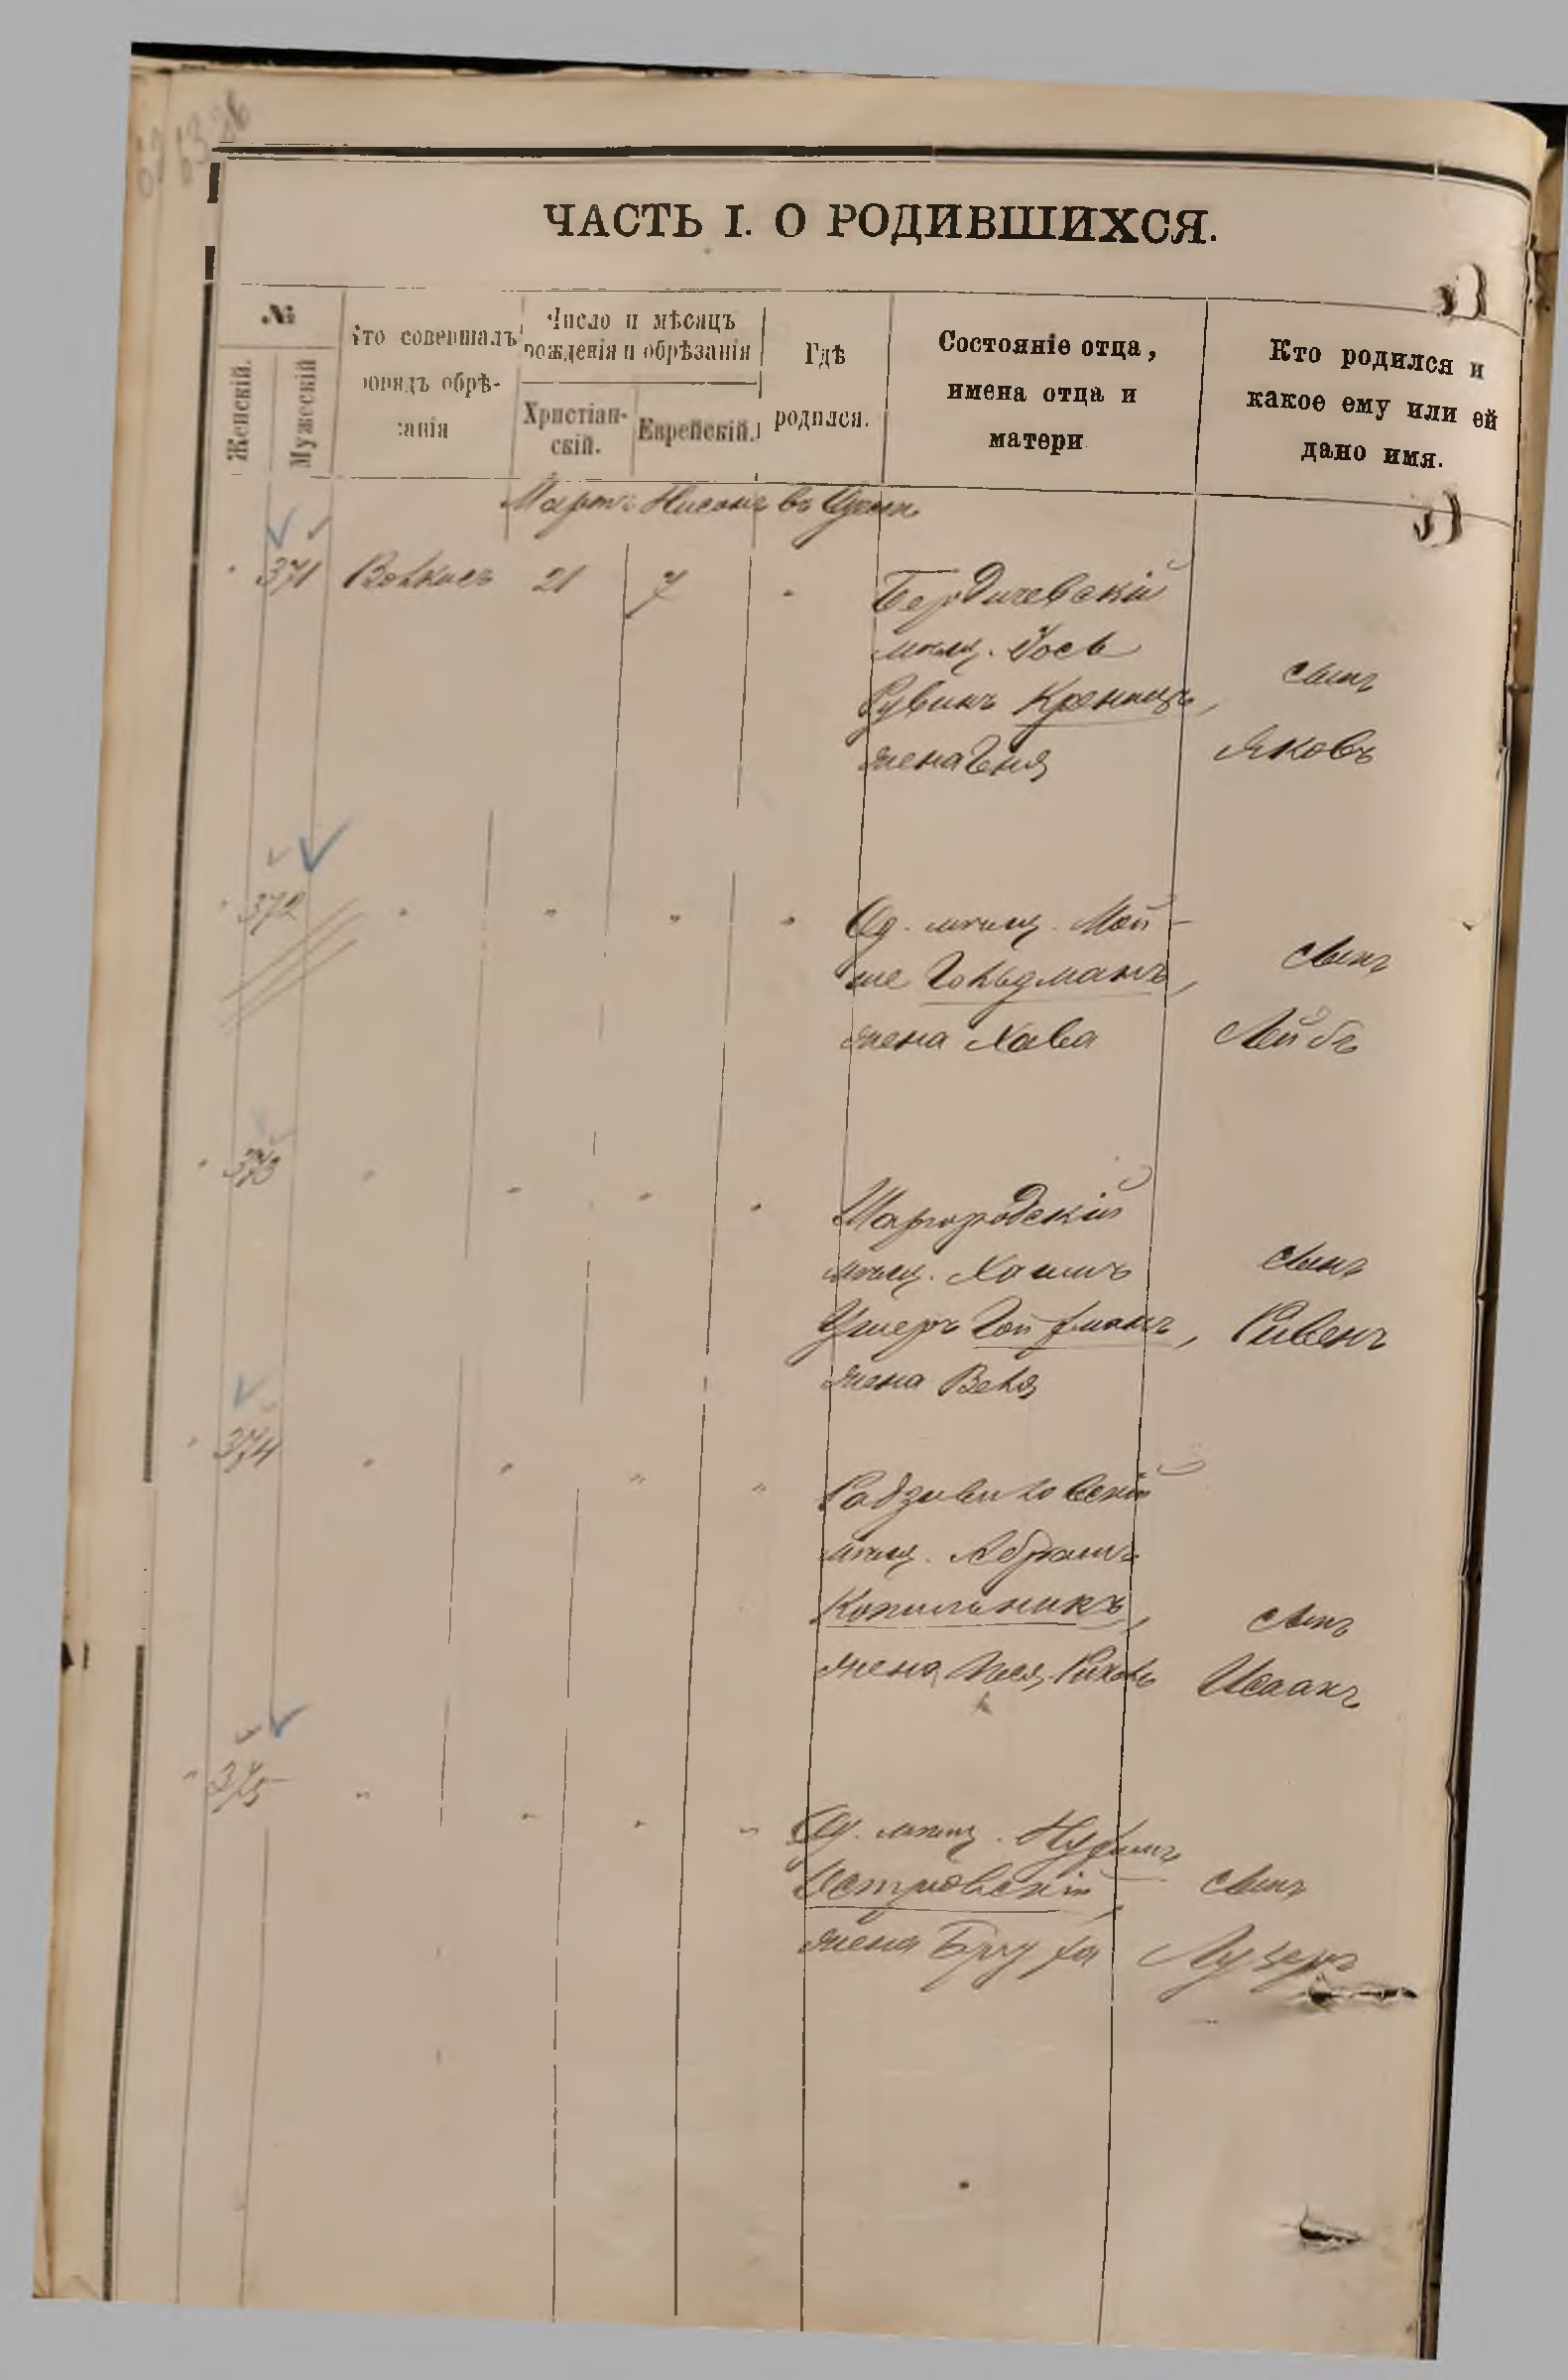 ЧАСТЬ I. О РОДИВШИХСЯ.
№
Женскій.
Мужескій
Кто совершалъ
обрядъ обрѣ-
занія
Число и мѣсяцъ
рожденія и обрѣзанія
Христіан-
скій.
Еврейскій.
Гдѣ
родился.
Состояніе отца,
имена отца и
матери
Кто родился и
какое ему или ей
дано имя.
Мартъ Нисанъ въ Одессѣ
371 Волкисъ 21 7 "
Бердичевскій
мѣщ. Іось
Рувинъ Креницъ,
жена Геня
сынъ
Яковъ
372 " " " "
Од. мѣщ. Мой-
ше Гольдманъ,
жена Хава
сынъ
Лейбъ
373 " " " "
Шаргородскій
мѣщ. Хаимъ
Ушеръ Гойфманъ,
жена Веля
сынъ
Ривенъ
374 " " " "
Радзивиловскій
мѣщ. Абрамъ
Копильникъ,
жена Рихель
сынъ
Исаакъ
375 " " " "
Од. мѣщ. Нухимъ
Островскій,
жена Бруха
сынъ
Лузеръ